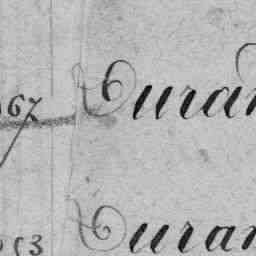 67 Duran
53 Duran